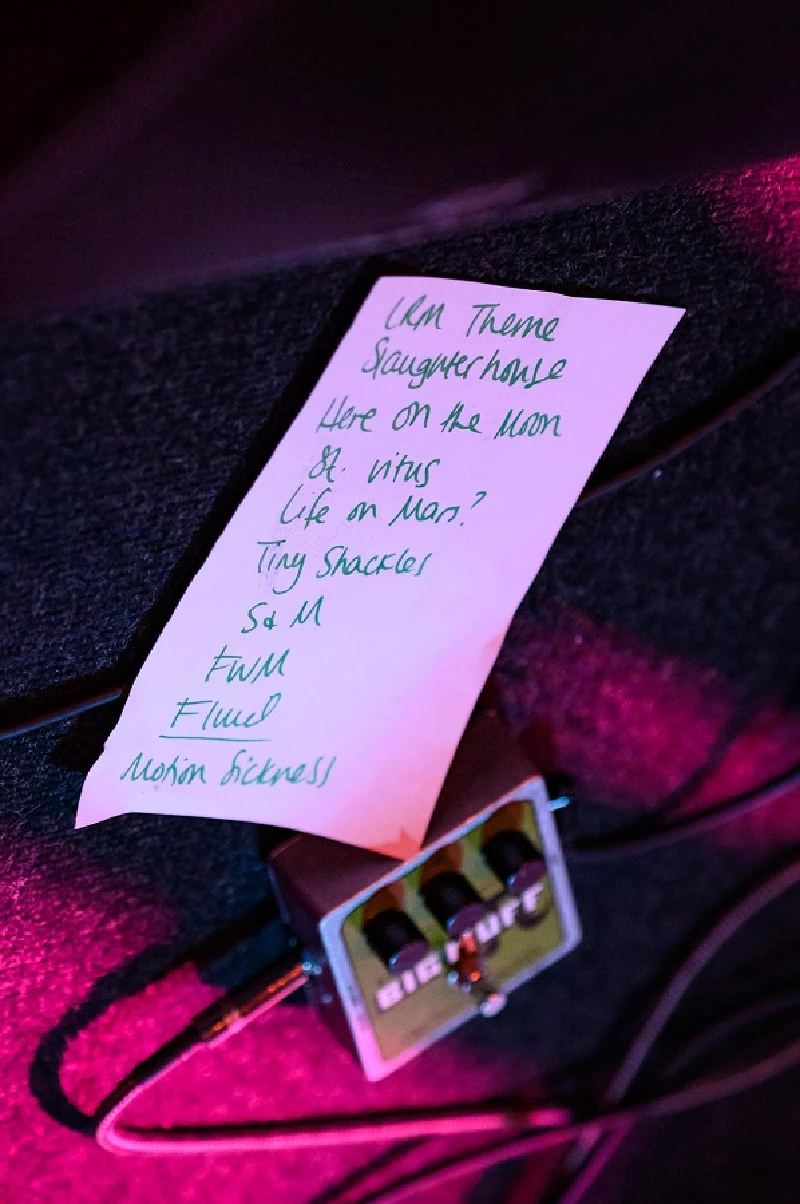 LRM Theme
Slaughterhouse
Here on the Moon
St. Vitus
Life on Mars?
Tiny Shackles
S&M
FWM
Fluid
Motion Sickness
BIG MUFF